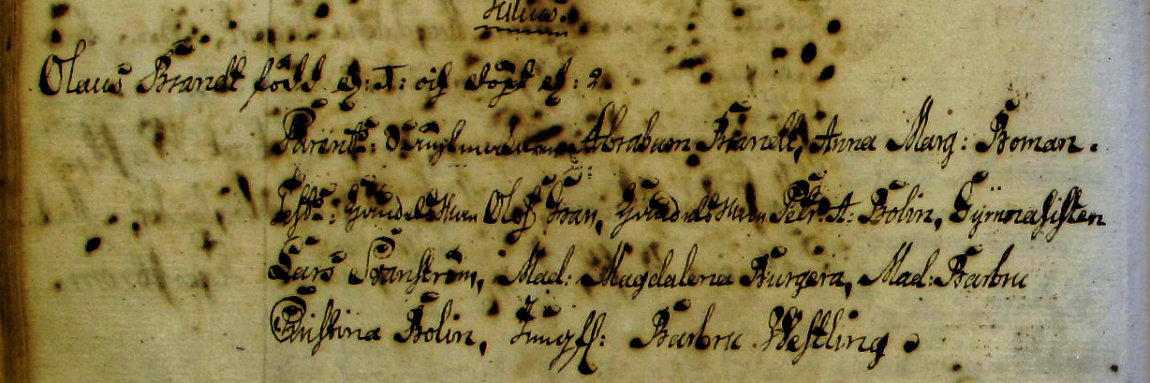 Julius.
Olaus Brandt född d: 1: och döpt d: 2.
Parent: Abraham Brandt, Anna Marg: Boman.
Test: Handelsman Olof Svan, Handelsman Petr. A: Bolin, Gymnasisten
Lars Svanström, Mad: Magdalena Burgera, Mad: Barbru
Christina Bolin, Jungfr: Barbru Westling.